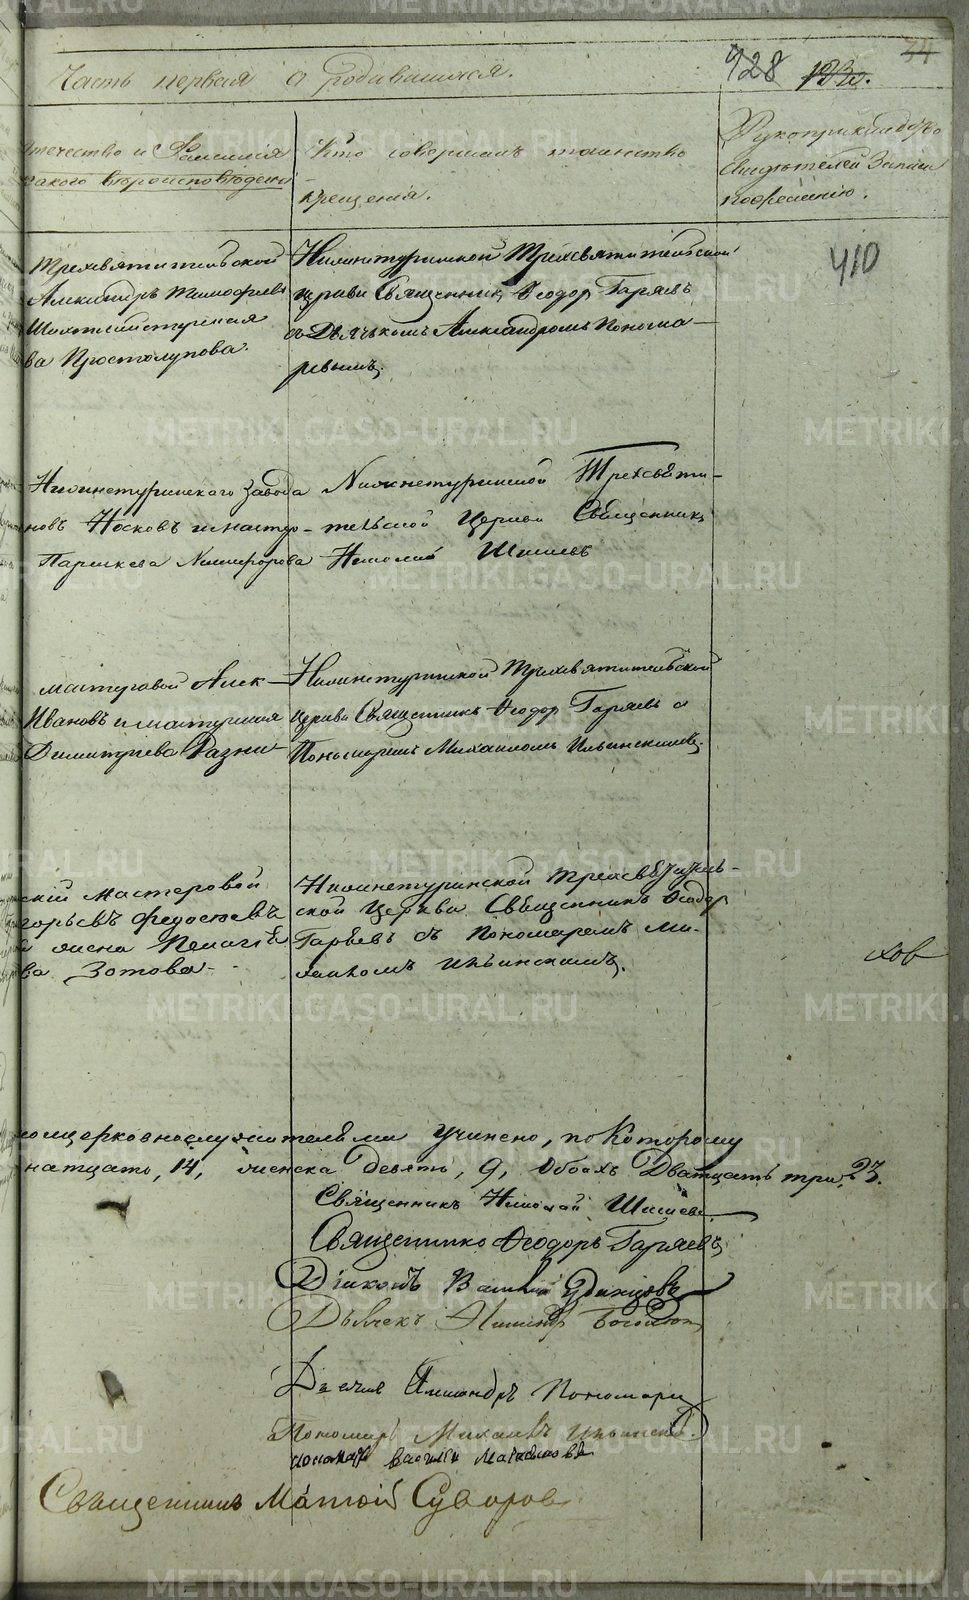 34
Часть первая о родившихся.
428
отечество и Фамилія
какого вѣроисповѣденія
Кто совершалъ таинство
крещенія.
Рукоприкладство
Свидѣтелей Записи
по желанію.
410
Трехсвятительской
Александръ Тимофеевъ
ва Простолупова.
Нижнетуринской Трехсвятительской
Церкви Священникъ Ѳеодоръ Гаряевъ
съ Дьячькомъ Александромъ Понома-
ревымъ.
Нижнетуринского Завода
новъ Носковъ и мастер-
Параскева Никифорова
Нижнетуринской Трехсвяти-
тельской Церкви Священникъ
Николай Шишевъ
мастеровой Алек-
Ивановъ и мастерская
Димитриева Разни-
Нижнетуринской Трехсвятительской
Церкви Священникъ Ѳеодоръ Гаряевъ с
Пономаремъ Михаиломъ Ильинскимъ.
скій мастеровой
горьевъ Федосеевъ
жена Пелагѣя
ва Зотова
Нижнетуринской Трехсвятитель-
ской Церкви Священникъ Ѳеодоръ
Гаряевъ съ Пономаремъ Ми-
хаиломъ Ильинскимъ.
хов
церковнослужителями учинено, по Которому
натцать, 14, женска девять, 9, Обоихъ Дватцать три, 23.
Священникъ Николай Шишевъ
Священникъ Ѳеодоръ Гаряевъ
Діаконъ Василій Удинцовъ
Дьячекъ
Дьячекъ Александръ Пономарев
Пономарь Михаилъ Ильинской.
пономарь василій
Священникъ Матѳій Суворовъ
METRIKI.GASO-URAL.RU